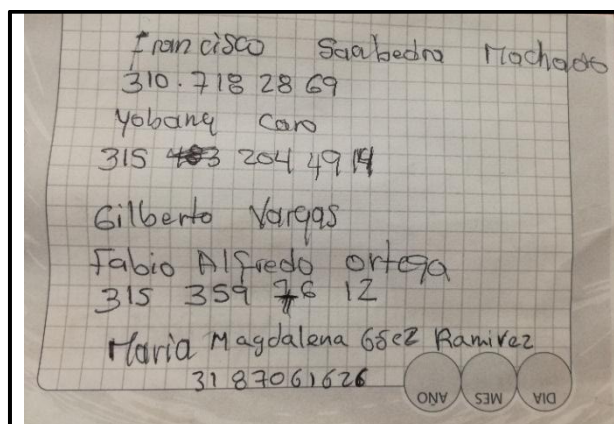 Francisco Saabedra Machado
310.718 28 69
Yobany Caro
315 204 49 14
Gilberto Vargas
Fabio Alfredo Ortega
315 359 76 12
Maria Magdalena Ramirez
31 87061626
DIA MES AÑO